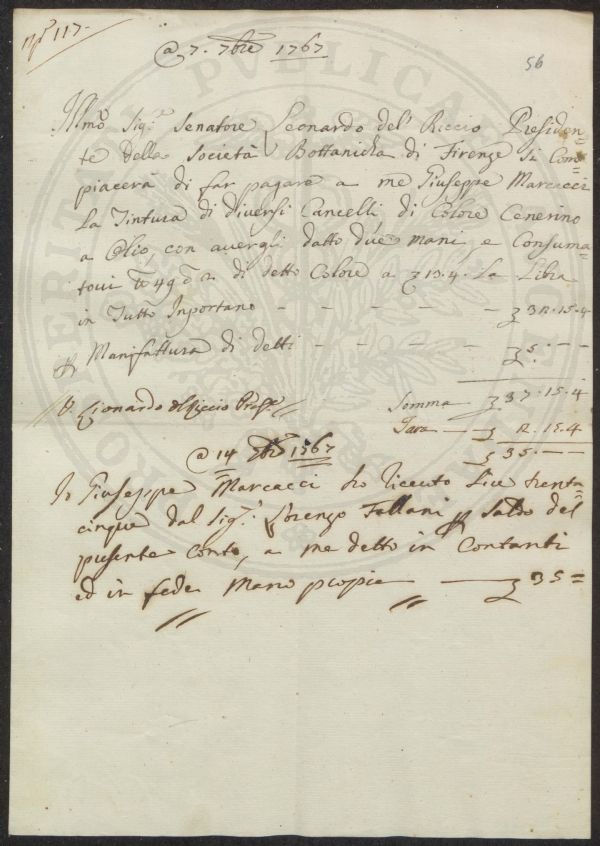 N.° 117.
@ 7. 7bre 1767
56
Ill.mo Sig.re Senatore Leonardo del Riccio Presiden=
te Della Società Bottanicha di Firenze Si Com=
piacerà di far pagare a me Giuseppe Marcacci
La Tintura di diversi Cancelli di Colore Cenerino
a Olio, con avergli datto due mani, e Consuma=
tovi di detto Colore a 13.4. La Libra
in Tutto Inportano - - - - - 32.15.4
P Manifattura di detti - - - - 5. - -
Somma 37.15.4
V. Lionardo del Riccio Prese
Tara 2.15.4
35. - -
@ 14 7bre 1767
Io Giuseppe Marcacci ho ricevto Lire trenta=
cinque dal Sig.r Lorenzo Fallani p Saldo del
presente Conto, a me detto in Contanti
ed in fede Mano propia 35=
PRO PUBLICA